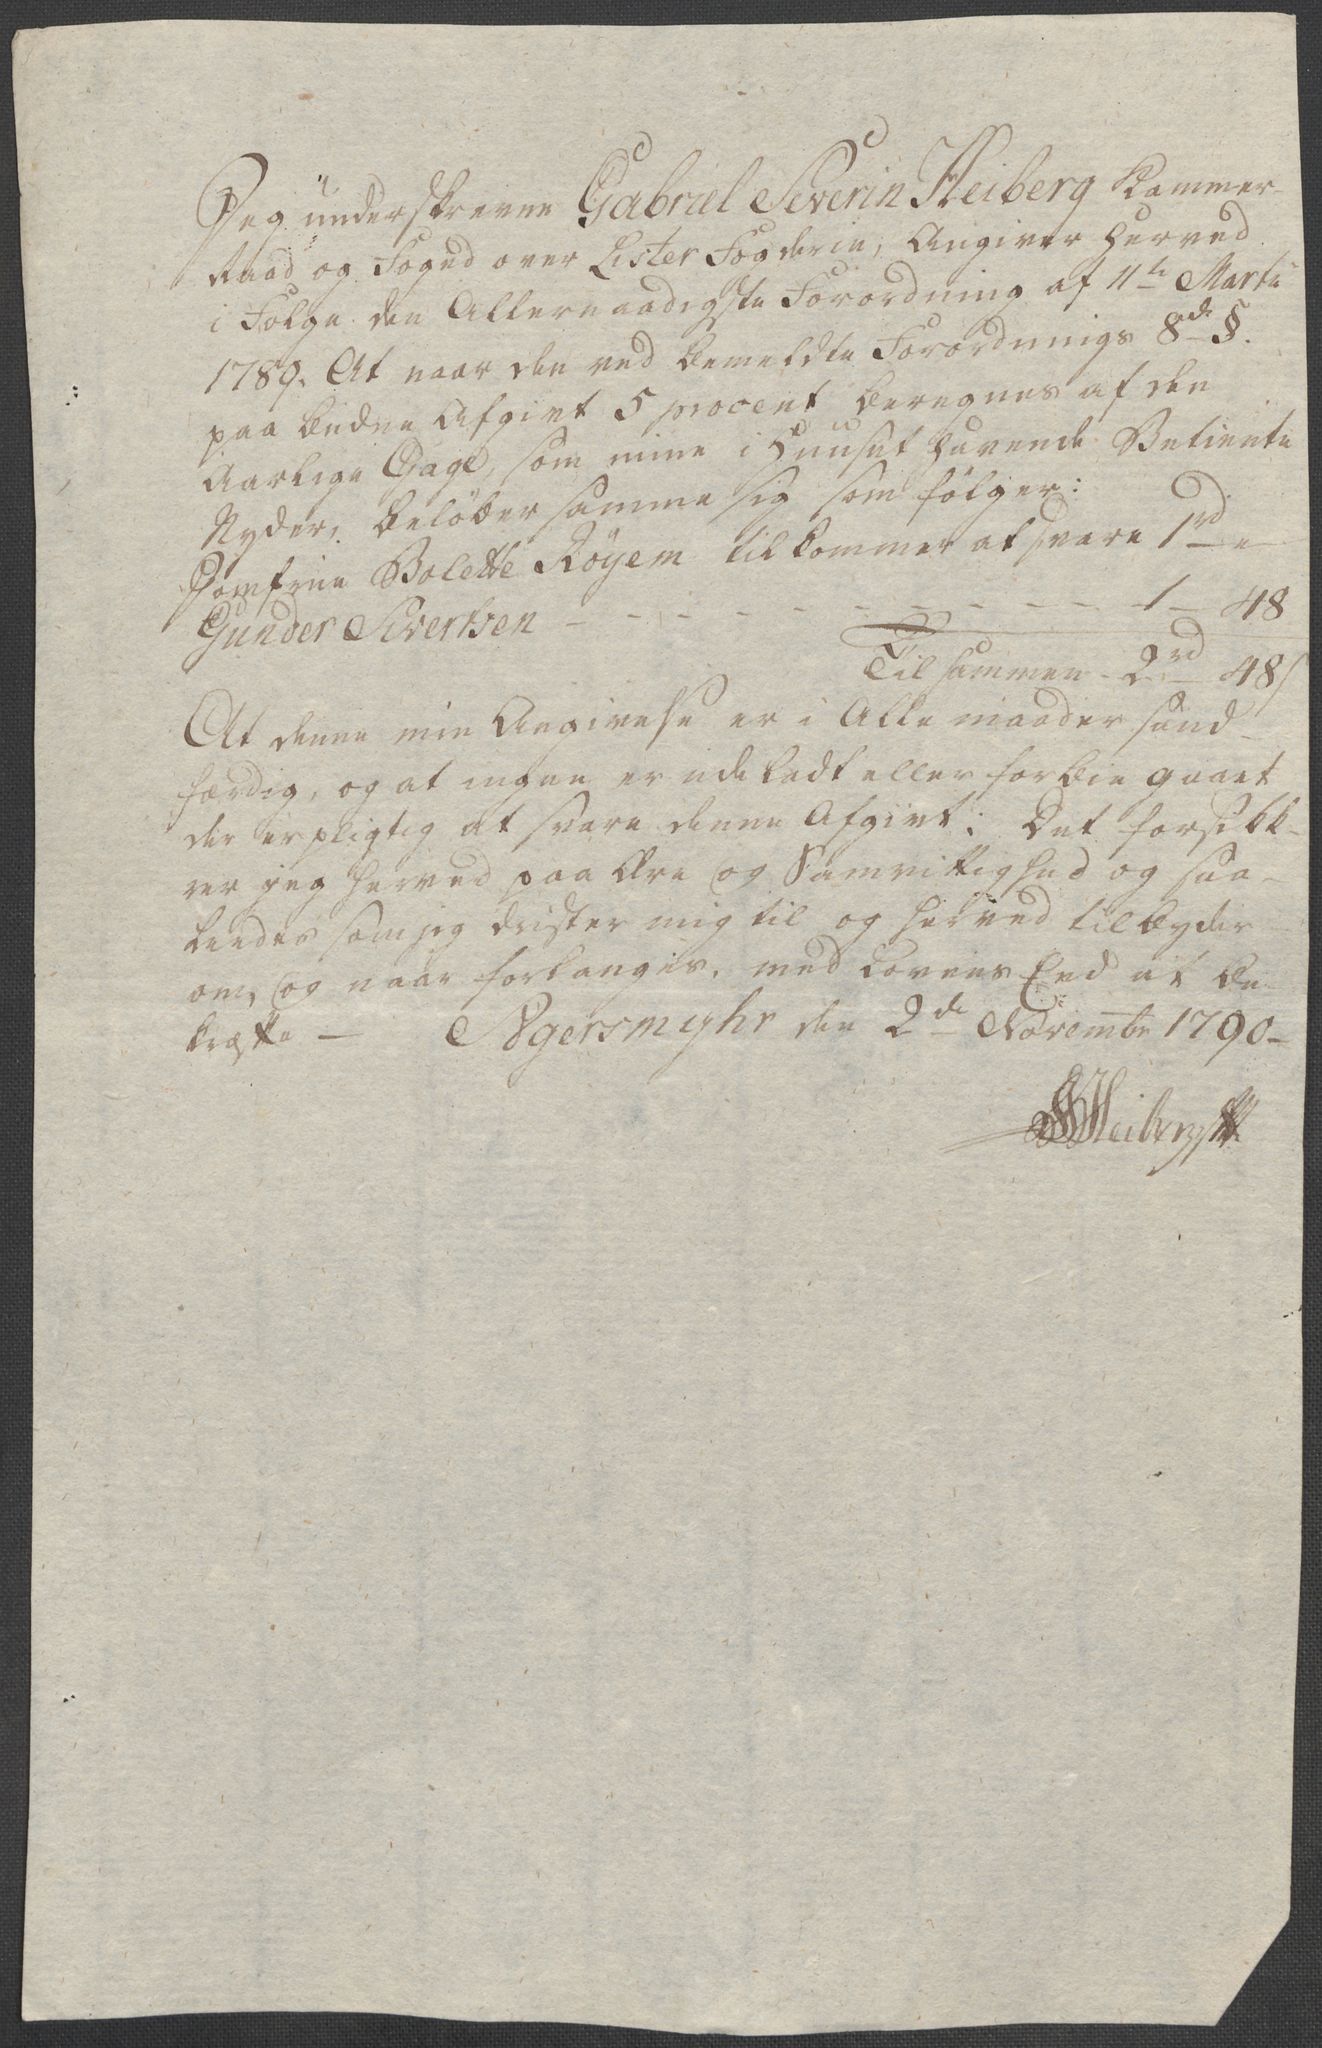 Jeg underskrevne Gabriel Severin Heiberg Kammer-
Raad og Foged over Lister Fogderie, Angiver herved
i Følge den Allernaadigste Forordning af 11te Martii
1789. At naar den ved bemeldte Forordnings 8de §.
paa budne Afgivt 5 procent beregnes af den
Aarlige Gage, som mine i Huuset havende Betiente
Nyder, beløber samme sig som følger:
Jomfrue Bolette Röyem tilkommer at svare 1rd "
Gunder Sivertsen - - - - - - - - - - 1 - 48
Tilsammen - 2rd 48s
At denne min Angivelse er i Alle maader sand-
færdig, og at ingen er udeladt eller forbie gaaet
der er pligtig at svare denne Afgivt: Det forsikk-
rer jeg herved paa Ære og Samvittighed og saa-
ledes som jeg drister mig til og herved tilbyder
om, og naar forlanges, med Lovens Eed at be-
kræfte - Agersmyhr den 2de Novembr 1790-
GSHeiberg